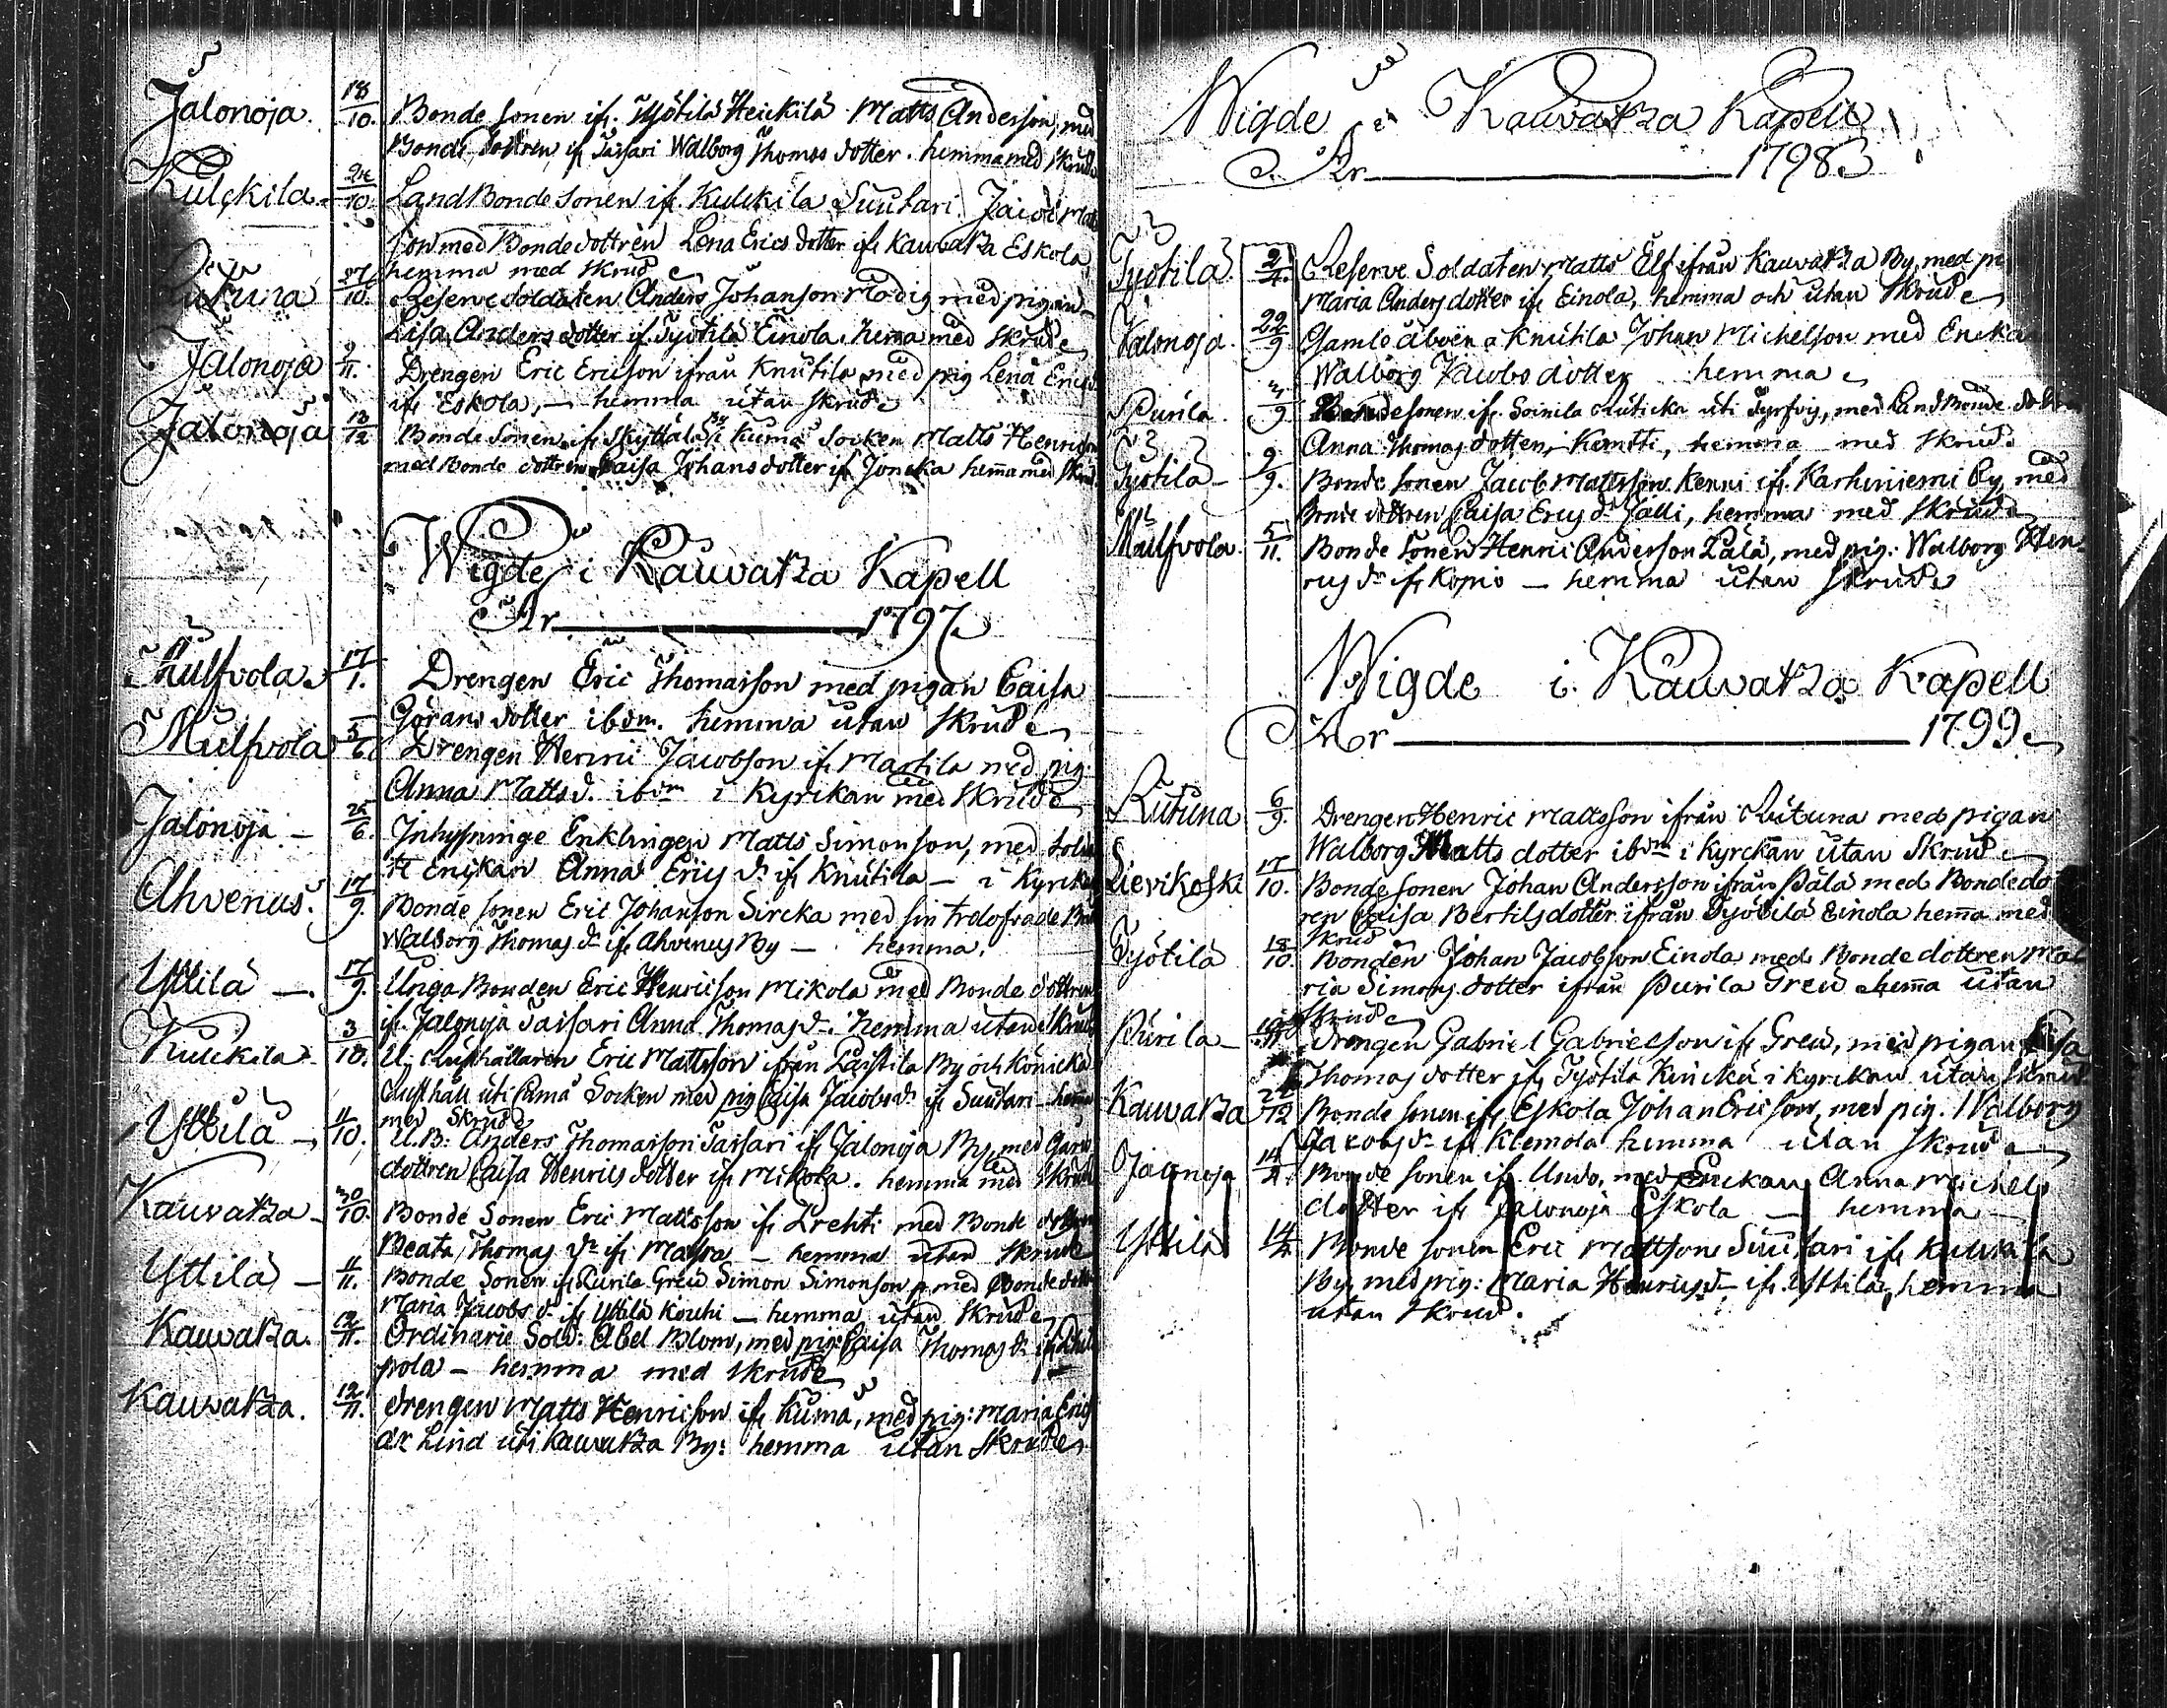 Jalonoja. 18/10. Bonde sonen ifr. Työtilä Heickilä Matts Anderson, med
Bonde dottren ifr Taisari Walborg Thomas dotter. hemma med skrud
Kulckila 24/10. LandBonde sonen ifr. Kulckila Suutari Jacob Mats
son med Bonde dottren Lena Erics dotter ifr Kauvatza Eskola
hemma med skrud
27/10. Reserve soldaten Anders Johanson Modig med pigan
Lisa Anders dotter if. Työtilä Einola. hema med skrud
Jalonoja 9/11. Drengen Eric Ericson ifrån Knutila med pig Lena Erics
ifr Eskola, — hemma utan skrud
Jalonoja 13/12 Bonde Sonen ifr Skyttälä By i Kumå Socken Matts Henrics
med Bonde dottren Caisa Johans dotter if Joncka hemma med skrud
Wigde i Kauvatza Kapell
År 1797
Mulfvola 17/1. Drengen Eric Thomasson med pigan Caisa
Görans dotter ibdm. hemma utan skrud
Mulfvola 5/6 Drengen Henric Jacobson ifr Martila med pig
Anna Matts d. ibdm i Kyrckan med skrud
Jalonoja — 25/6. Inhysninge Encklingen Matts Simonson, med Solda
te Enckan Anna Erics dr ifr Knutila — i Kyrckan
Ahvenus. 17/9. Bonde sonen Eric Johanson Sircka med sin trolofvade
Walborg Thomas dr ifr Ahvenus By — hemma.
Yttilä —. 17/9. Unga Bonden Eric Henricson Mikola med Bonde dottren
ifr. Jalonoja Taisari Anna Thomas d. hemma utan skrud
Kulckila 3/10. U. Rusthållaren Eric Mattsson ifrån Laistila By och Könickä
Rusthåll uti Cumå Socken med pig Caisa Jacobs dr if Suutari — hemma
med skrud
Yttilä — 11/10. U.B: Anders Thomasson Taisari if Jalonoja By, med
dottren Caisa Henrics dotter ifr Mikola. hemma med skrud
Kauvatza 30/10. Bonde Sonen Eric Mattsson ifr Lrehti med Bonde dottren
Beata Thomas dr ifr — hemma utan skrud
Yttilä — 11/11. Bonde Sonen ifr Purila Greu Simon Simonson med Bonde dotter
Maria Jacobs d. ifr Yttilä Kouhi — hemma utan skrud
Kauvatza. 12/11. Ordinarie Sold: Abel Blom, med pig: Caisa Thomas d: ifr
pola — hemma med skrud
Kauvatza. 12/11. drengen Matts Henricson ifr Kumå, med pig: Maria Erics
dr Lind uti Kauvatza By: hemma utan skrud
Wigde i Kauvatza Kapell
År 1798
Työtilä. Reserve Soldaten Matts Elf ifrån Kauvatza By, med pi
Maria Anders dotter ifr Einola, hemma och utan skrud
Jalonoja. 22/9 Gamle Åboen a Knutila Johan Michelson med Encka
Walborg Jacobs dotter hemma
Purila. 9 Bonde sonen ifr. Soinila Ruticka uti Tyrfvis, med Land Bonde dotter
Anna Thomas dotter, Kamtti, hemma med skrud
Työtilä — 9/9. Bonde sonen Jacob Mattsson Kenni ifr. Karhiniemi By med
Bonde dottren Caisa Erics dr Jälli, hemma med skrud
Mulfvola. 5/11. Bonde sonen Henric Anderson Pälä, med pig: Walborg Hen-
rics dr ifr Kopio — hemma utan skrud
Wigde i. Kauvatza Kapell
År 1799
Rutuna 6/9. Drengen Henric Mattsson ifrån Rutuna med pigan
Walborg Matts dotter ibdm i Kyrckan utan skrud
Lievikoski 17/10. Bonde sonen Johan Andersson ifrån Pälä med Bonde do
ren Caisa Bertils dotter ifrån Työtilä Einola hemma med
skrud
Työtilä 18/10. Bonden Johan Jacobsson Einola med Bonde dottren Ma
ria Simons dotter ifrån Purila Greu hemma utan
skrud
Purila — Drengen Gabriel Gabrielson ifr Greu, med pigan Lisa
Thomas dotter ifr Työtilä Kuicku i Kyrckan utan skrud
Kauvatza 22/12 Bonde sonen ifr Eskola Johan Ericson, med pig. Walborg
Jacobs dr ifr Klemola hemma utan skrud
Jalonoja Bonde sonen ifr Undo, med Enckan Anna Michels
dotter ifr Jalonoja Eskola — hemma —
Yttilä Bonde sonen Eric Mattson Suutari ifr Kulckila
By, med pig: Maria Henrics d. ifr. Yttilä, hemma
utan skrud.